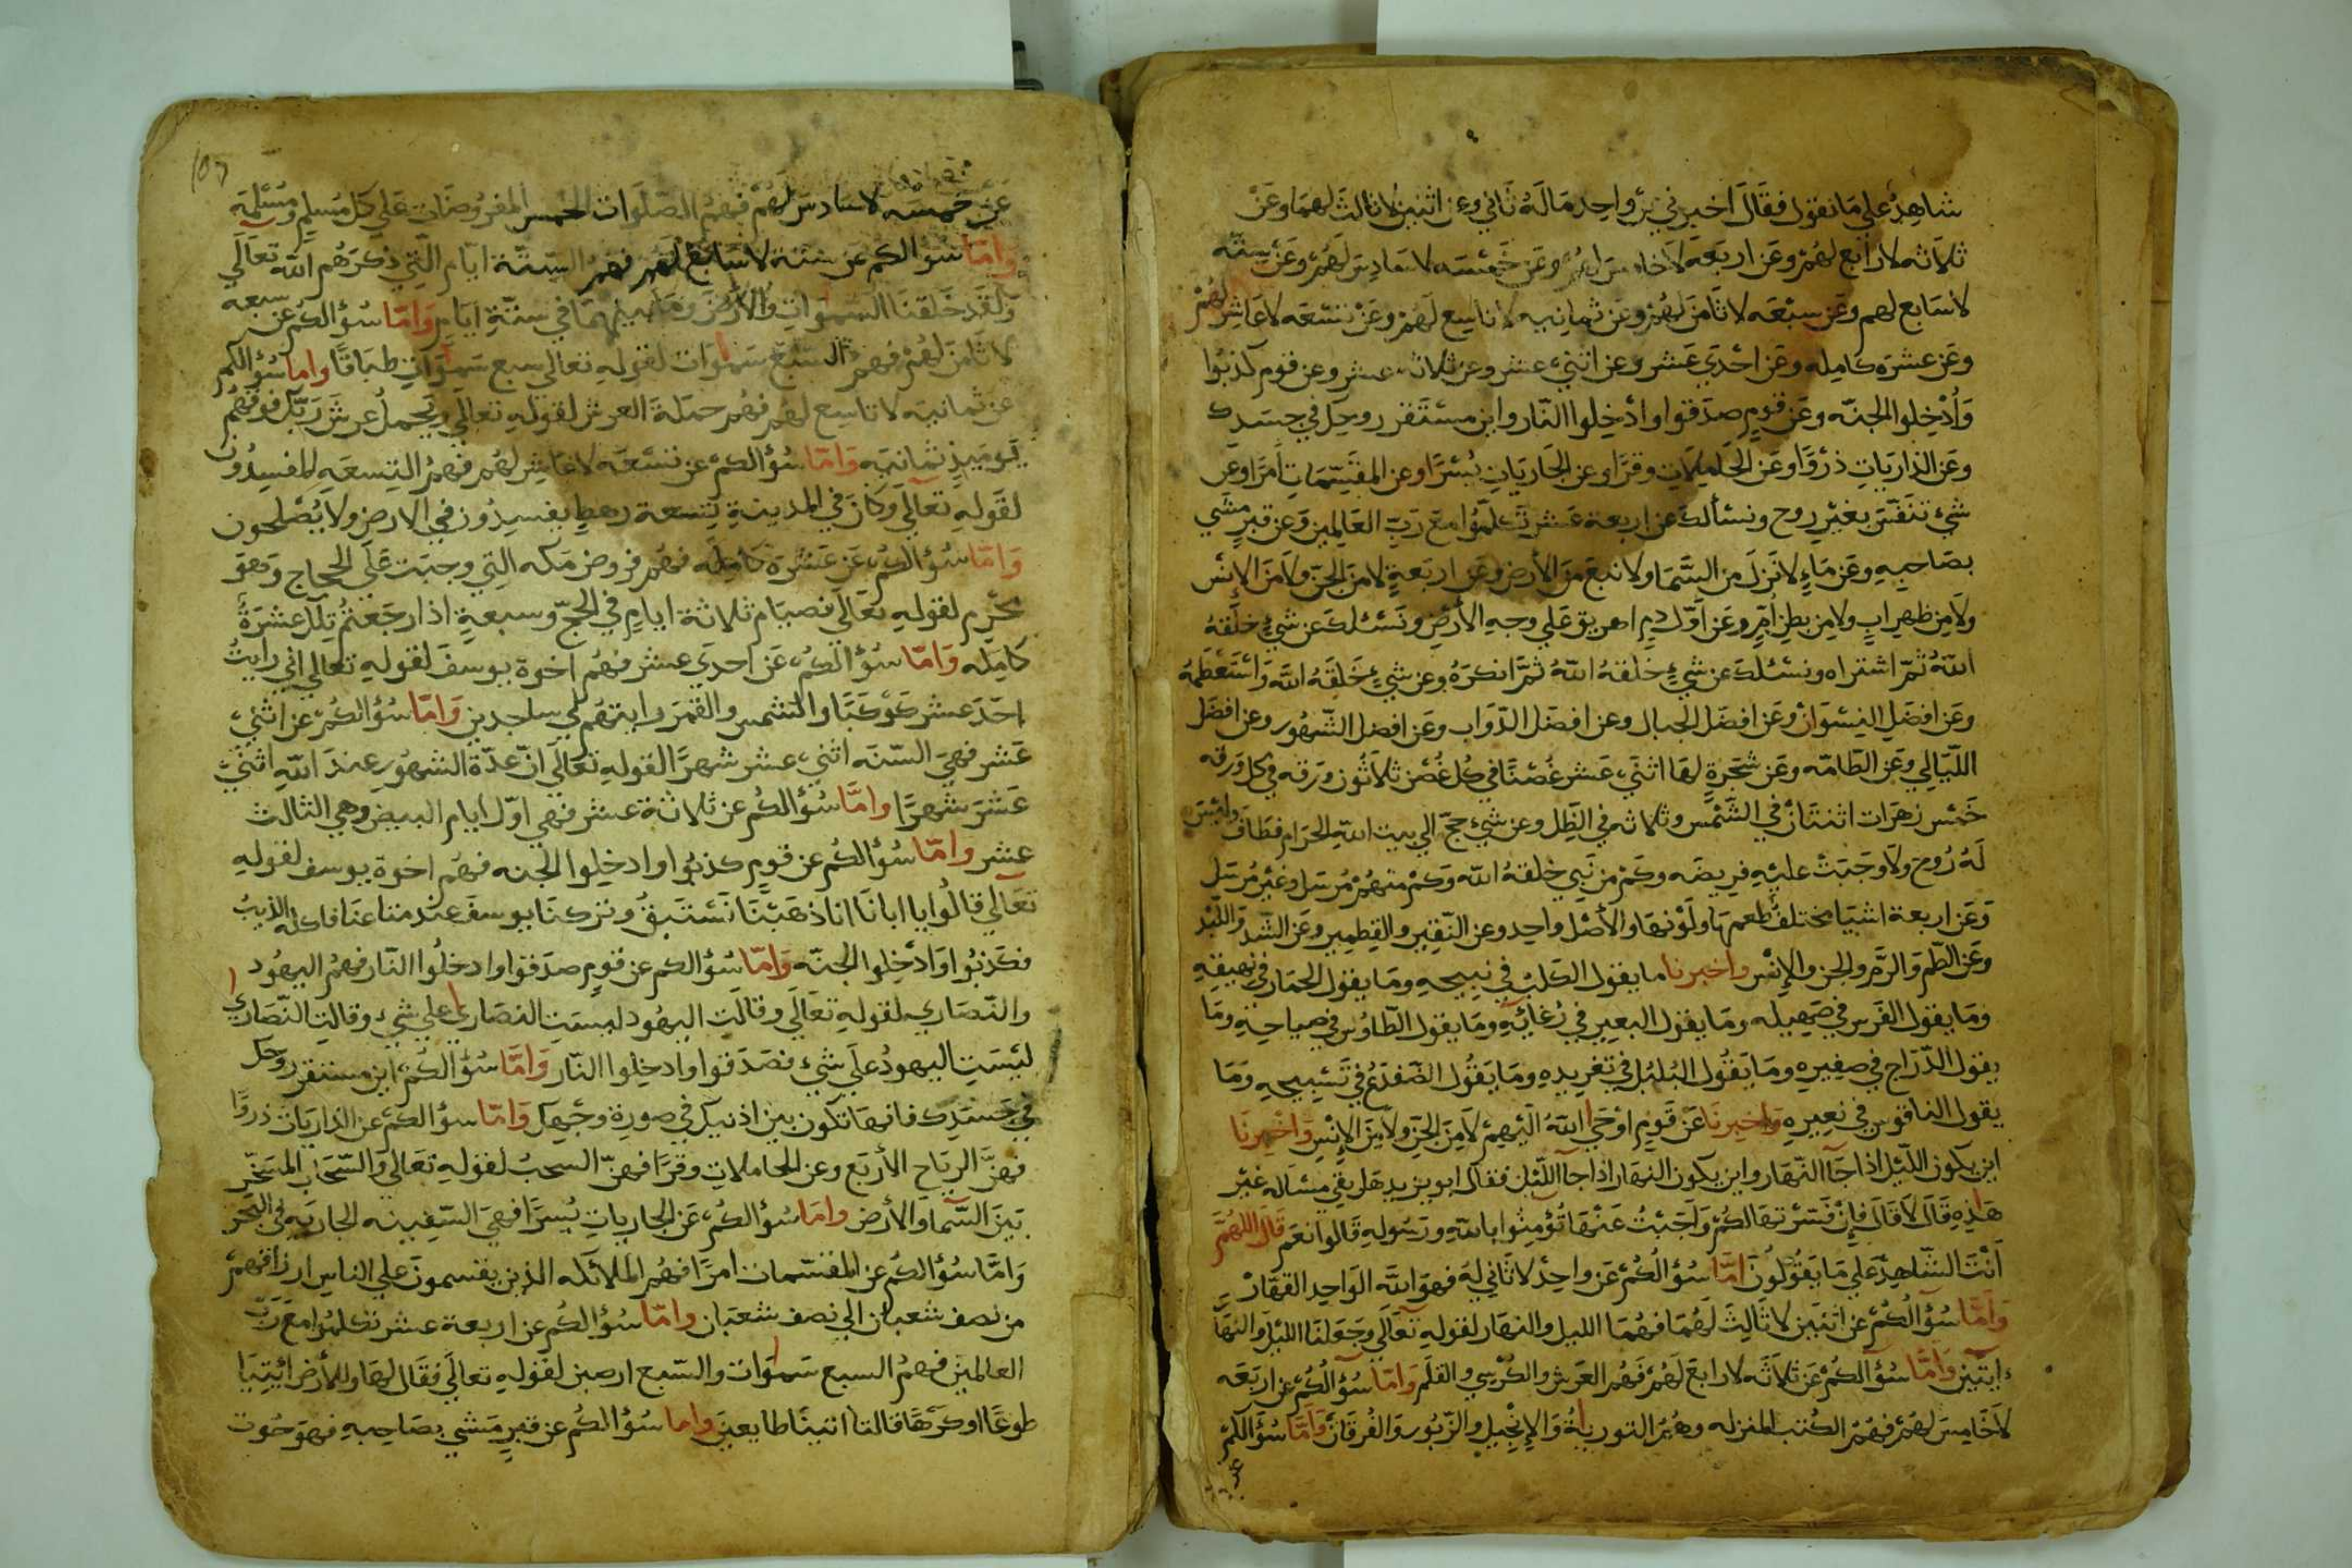 شاهِدٌ علي مَا نقول فقَالَ اخبرني عن واحِد مَالَهُ ثَانيٍ وعن اثنين لا ثالثَ لهمَا وعَنْ
ثلاَثه لا رابع لهُمْ وعَن اربَعَه لاَ خامسَ لهُمْ وعَن خَمْسَه لا سَادِسَ لَهُمْ وعَنْ سِتّه
لا سَابع لهم وعَن سبْعَه لا ثَامِنَ لهُمْ وعن ثمانِيه لا تاسِع لَهُمْ وعَنْ تسْعَه لا عَاشِر لهُمْ
وعَن عشرَه كامِله وعَن احْدَي عَشر وعن اثنيْ عشر وعن ثلاثه عشر وعن قوم كذبُوا
وَأُدْخِلوا الجنّه وعَن قومٍ صدَقوا وادْخِلوا النّار واين مسْتَقر روحِك في جسَدِك
وعَن الذارِيَاتِ ذرْوًا وعَن الحَامِلاَتِ وقرًا وعن الجَارِيَاتِ يُسْرًا وعن المقَسِّمَاتِ أمرًا وعن
شيْ تنَفّسَ بغَيْرِ رِوح ونسألكَ عن اربعة عَشر تكلّمُوا مَعَ رَبِّ العَالمين وَعن قبرٍ مشَي
بصَاحبِهِ وعَن مَاءٍ لا نَزلَ مِن السَّمَا ولا نبعَ منَ الأرض وعَن اربَعةٍ لا مِنَ الجنّ ولاَ مِنَ الإنْس
ولاَ مِن ظهرِ ابٍ ولا مِن بطنِ أُمٍّ وعَن اوّل دِمٍ اهريق عَلي وجهِ الأرْضِ ونَسْئلكَ عن شيْءٍ خلَقهُ
اللهُ ثمّ اشتراه ونسْئلكَ عن شيْءٍ خلَقهُ اللهُ ثمَّ انكرَهُ وعن شيْءٍ خَلقَهُ اللهُ وَاسْتَعْظَمهُ
وعَن افضَلِ النِسْوَانْ وعَن افضَل الجبال وعن افضَل الدّوَاب وعَن افضل الشّهُور وعن افضَل
اللّيَالِي وعَن الطّامّه وعَن شجَرةٍ لهَا اثنَيْ عَشر غُصْنًا في كُل غُصْن ثلاَثُون ورَقه في كل ورَقه
خَمْس زهرَات اثنتَانْ في الشّمْس وثلاثه في الظِل وعن شيْ حجّ الي بيت اللهِ الحرَام فطَافَ وليْسَ
لَهُ رُوحَ ولاَ وجَبَتْ عليْهِ فريضَه وكَم مِن نَبي خلقهُ الله وَكمْ منهُمْ مُرسَل وغيْر مُرسَل
وَعَن اربعة اشيَا مختلف طعمهَا ولَوْنهَا والأصْل واحِد وعن النّقيْرِ والقِطمِير وعَن السَّبد واللَّبْد
وعَن الطّم والرَّم والجن والإنْس واخبرنا ما يقول الكَلبْ في نبيحهِ ومَا يقول الحمَار في نهيقِهِ
ومَا يقول الفَرس في صَهيله ومَا يقول البعيرِ في رُغائهِ ومَا يقول الطّاوُس في صياحِهِ ومَا
يقول الدّرَاج في صفِيره ومَا يَقُول البُلبُل في تغريدِهِ ومَا يَقُول الضّفدَعُ في تَسْبِيحِهِ ومَا
يقول الناقوس في نعِيرِهِ وَاخبِرنَا عَن قَومٍ اوْحَيَ اللهُ اليْهِمْ لاَ مِنَ الجَنِ ولاَ مِنَ الإنْسِ وَاخبِرنَا
اين يكون الليْل اذا جَآ النّهَار واين يكون النهَار اذا جَآ اللّيْل فقال ابو يزيد هَل بقي مسْالَه غيْر
هَذِهِ قَالَ لاَ قَالَ فإنْ فسّرتهَا لكُمْ واَجَبْتُ عَنْهَا تُؤمِنُوا باللهِ ورَسُولهِ قَالوا نعَم قَالَ اللهُمَّ
اَنْتَ الشّاهِدُ عَلي مَا يَقُولُون امَّا سُؤالُكُمْ عَن واحِدْ لا ثَاني لهَ فهوَ اللهَ الوَاحِد القهَارْ
وَامَّا سُؤالكُمْ عن اثنَين لا ثَالِثَ لَهُمَا فهُمَا الليل والنهَار لقوله تعَالَي وجَعَلنَا الليْلَ والنهَار
ءايتين وَامَّا سُؤالكُمْ عَن ثلاَثَه لا رابعَ لَهُمْ فَهُم العَرش والكُرْسِي والقلَم وَامّا سُؤالكُمْ عن اربَعَه
لاَ خَامِسَ لهُمْ فهُمْ الكُتب المنزله وهُمُ التورَاةُ وَالإنْجِيل والزّبُور والفُرقانْ وَأمَّا سُؤالكمْ
عن
عَنْ خَمسَه لا سَادِسَ لَهُمْ فهُمْ الصّلَوَات الخمس المفروضَات عَلي كل مُسلم ومُسْلمَه
وامّا سُؤالكم عن ستة لا سَابعَ لَهم فهمُ السِتّة ايام التي ذكرَهُم الله تعَالَي
ولَقَد خَلقنَا السموَاتِ والأرْضَ وَمَا بينهما في ستّةِ ايّام وَامّا سُؤالكُمْ عن سبعه
لا ثامنَ لهُمْ فهمُ السّبع سَموَات لقولهِ تعالي سبع سَموَاتٍ طِبَاقًا واما سُؤالكم
عن ثمانيَه لا تاسِع لهُم فهُم حملَة العرش لقوله تعَالَي ويَحمِلُ عرشَ رَبِّكَ فوقهُمْ
يَومَئِذٍ ثمانيَه وَامّا سُؤالكمْ عن تسْعَه لا عَاشِر لهُم فهُمْ التِسعَه المفسِدُون
لقَولهِ تعَالَي وكَانَ في المدينةِ تِسعة رهطٍ يفسِدُون في الارض ولا يُصْلحون
وَامّا سُؤالكُمْ عَن عَشَرة كامِلَه فهُم فروض مَكه التِي وجبَت عَلَي الحجاج وَهوَ
محْرم لقولهِ تعَالَي فصيَام ثلاثة ايامٍ في الحجّ وسبعةٍ اذا رجَعتُم تِلك عشَرَةٌ
كَامِلَه وَامّا سُؤالكُمْ عَن احدَي عشر فهُم اخوة يوسفَ لقولهِ تعَالي اني رايتُ
احَدَ عشر كوكبًا والشمس والقمَر رايتهُم لي ساجِدين وَامّا سُؤالكُمْ عن اثنيْ
عَشر فهيَ السّنه اثنيْ عشر شهرًا لقولهِ تعَالَي انّ عدّة الشهُورِ عندَ اللهِ اثنيْ
عَشرَ شهرًا وامَّا سُؤالكُم عن ثلاثة عشر فهي اوّل ايام البيض وهي الثالث
عشر وامّا سُؤالكُم عن قومٍ كذبُوا وادخِلوا الجنه فهُم اخوة يوسف لقولهِ
تعَالَي قالُوا يا ابانَا انا ذهَبْنَا نَسْتبقُ وتركنَا يوسفَ عندَ متَاعنَا فاكله الذيبُ
فكذبُوا وَادْخِلوا الجنّه وَامّا سُؤالكم عن قومٍ صدَقوا وادخلُوا النّار فهُم اليهُود
والنّصَاري لقولهِ تعَالَي وقالَت اليهُود ليسَتِ النصَارَي علي شيْ وقالتِ النّصَاري
ليْسَتِ اليهودُ علَي شيْ فصَدَقوا وادخِلوا النّار وَامَّا سُؤالكُمْ اين مستقر روحَك
في جَسَدِك فانهَا تكون بين اذنيك في صورة وجْهِك وَامّا سؤالكم عن الذارِيَات ذروًا
فهنَّ الريَاح الأربَع وعن الحاملاتِ وقرًا فهنّ السحبُ لقوله تعَالَي والسّحَاب المسَخّر
بَينَ السّمآ والأرض وامَا سُؤالكُمْ عَن الجارياتِ يُسرًا فهيَ السّفينه الجاريَه في البَحْر
وَامَّا سُؤالكُم عن المقسّمات امرًا فهُم الملائكه الذين يقسمون علي الناس ارزاقهمْ
من نصف شعبان الي نصف شعبَان وامّا سُؤالكُم عن اربعة عشر تكلمُوا معَ رَبّ
العالمين فهُم السبع سَموَات والسّبع ارضين لقوله تعالَي فقَال لهَا وللأرض ائتِيَا
طوعًا اوكرْهًا قالتا اتينَا طايعينَ واما سُؤالكُم عن قبرٍ مَشي بصَاحِبهِ فهوَ حُوت